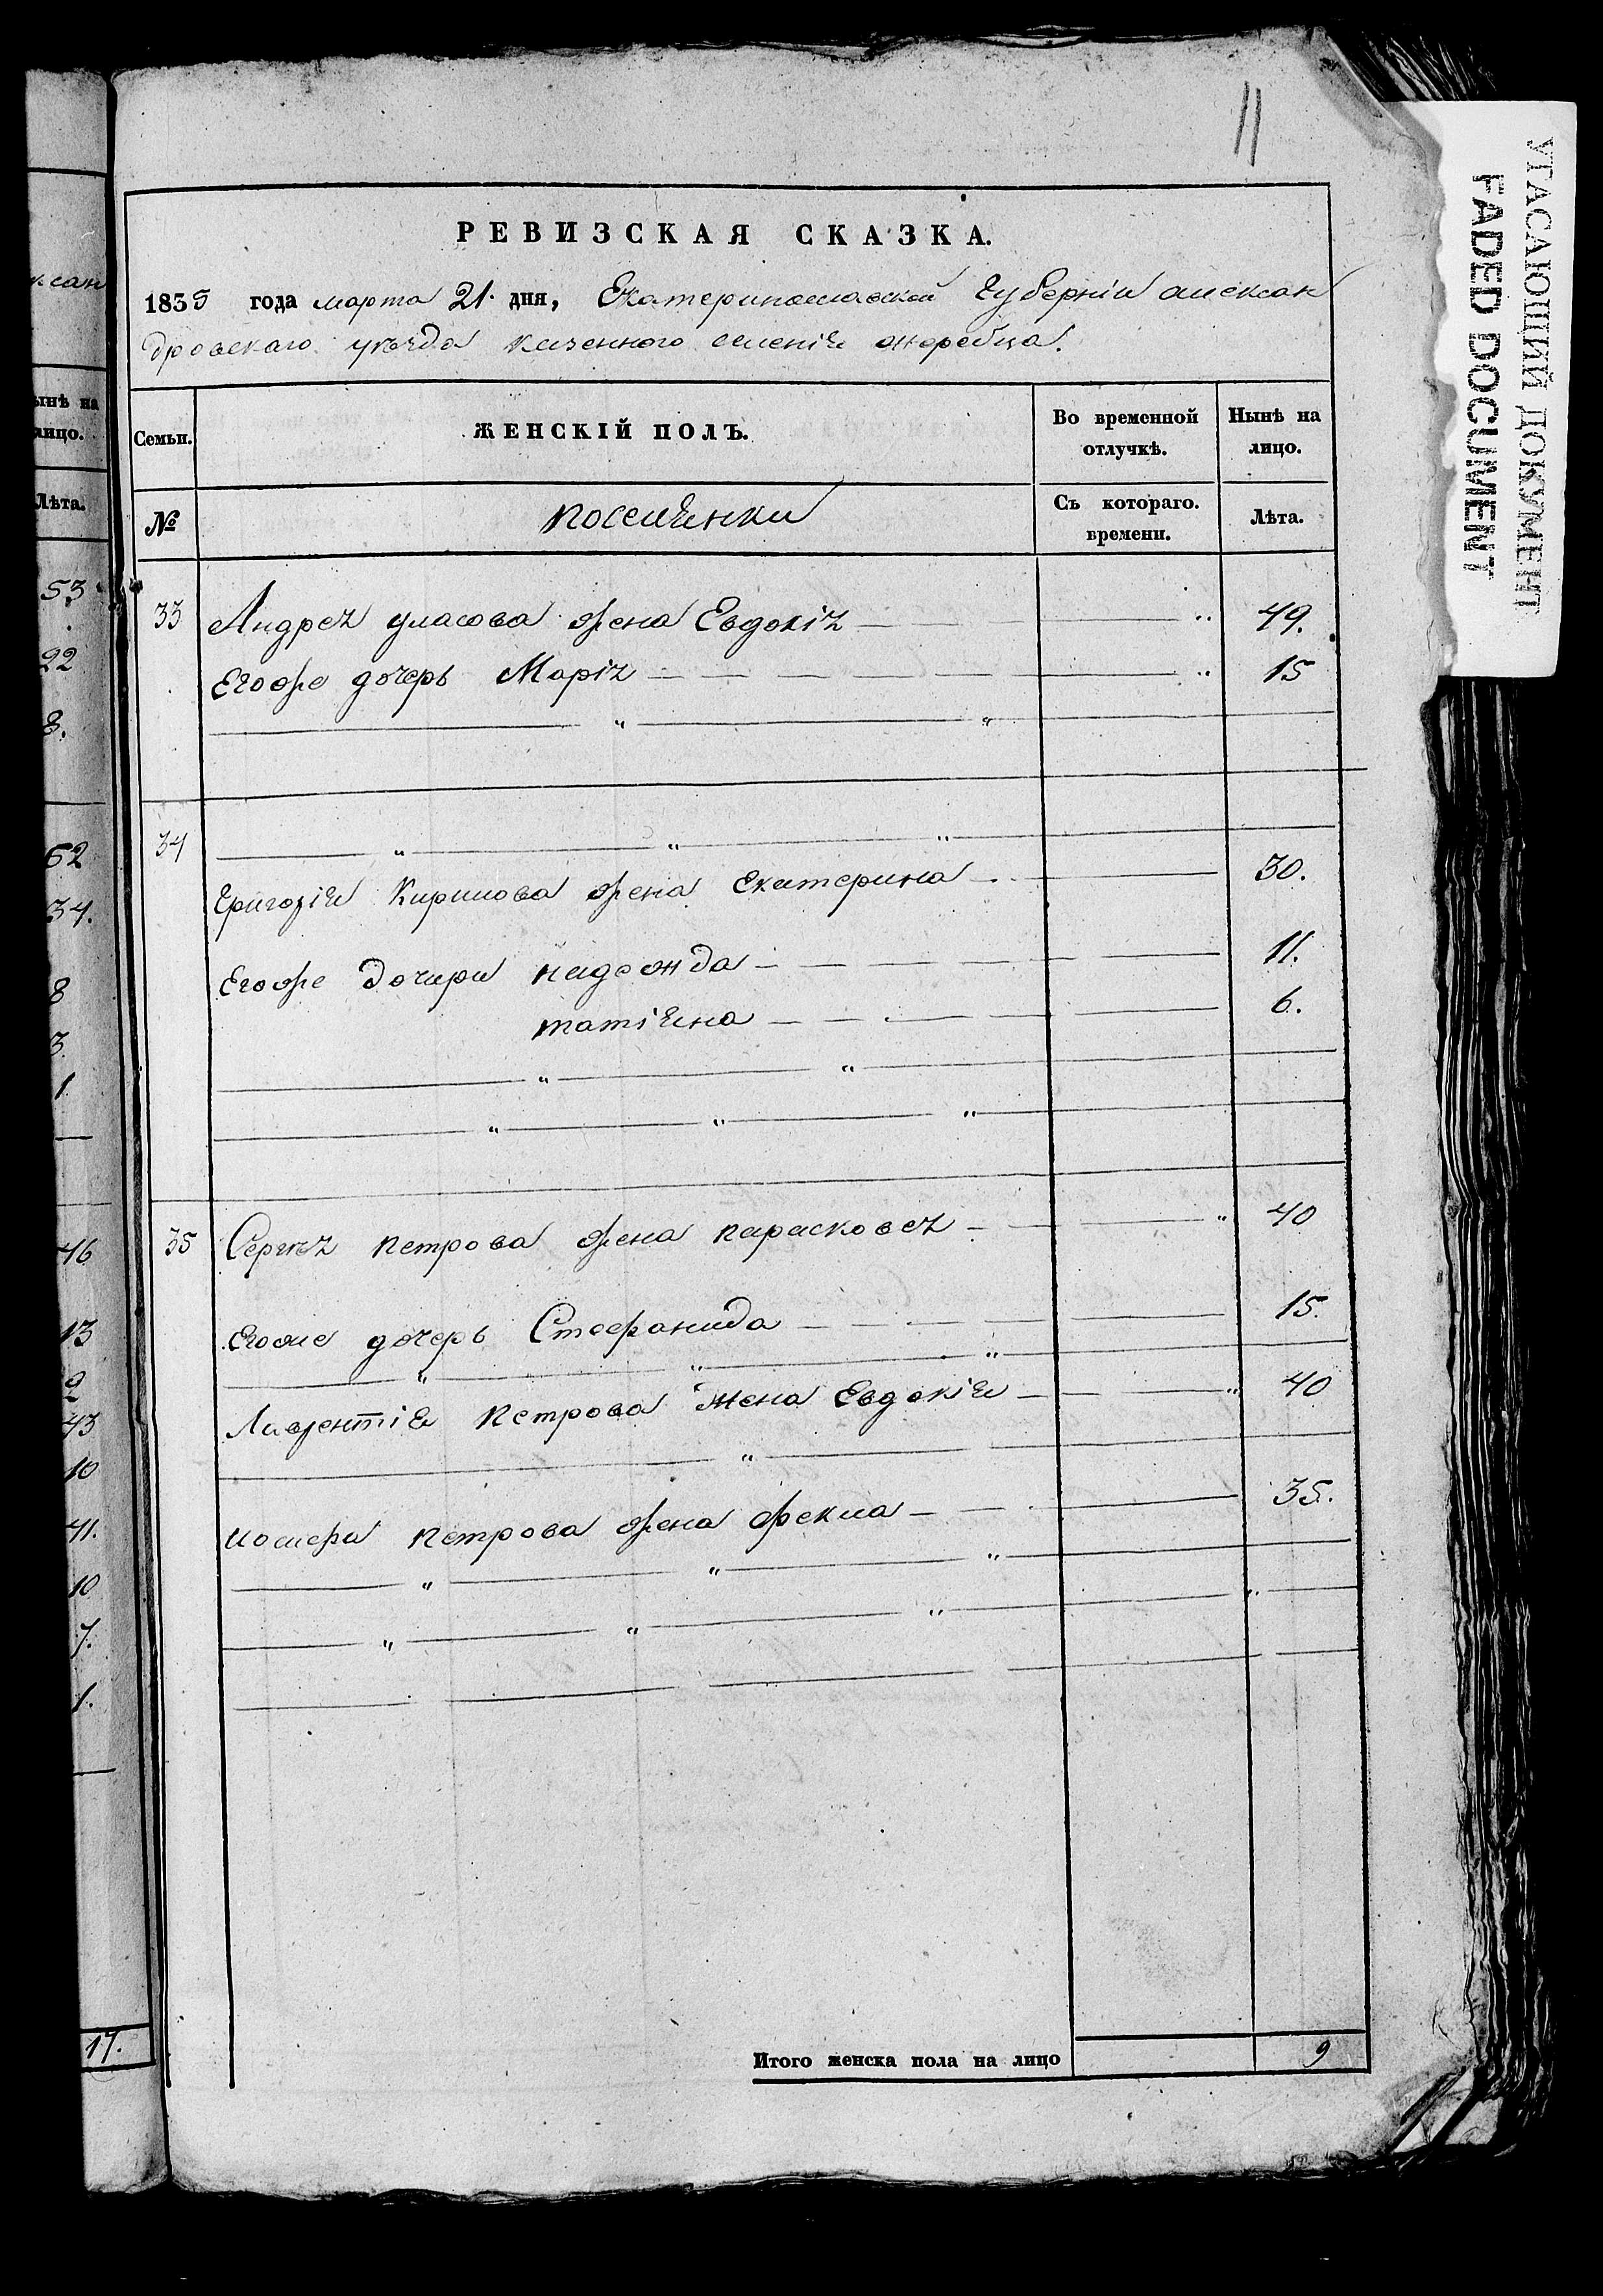 11
РЕВИЗСКАЯ СКАЗКА.
1835 года марта 21. дня, Екатеринославской губерніи алексан
дровскаго уѣзда казенного селенія жеребца.
Семьи. ЖЕНСКІЙ ПОЛЪ. Во временной отлучкѣ. Нынѣ на лицо.
№ поселянки Съ котораго. времени. Лѣта.
33 Андрея уласова жена Евдокія 49.
Егоже дочерь Марія 15
34
Григорія Кирилова жена Екатерина 30.
Егоже дочери надежда 11.
татіяна 6.
35 Сергѣя петрова жена парасковея 40
Егоже дочерь Стефанида 15.
Лаврентія Петрова жена Евдокія 40
петрова жена фекла 35.
Итого женска пола на лицо 9
ксан
ынѣ на
лицо.
Лѣта.
53
22
8.
62
34.
8
3.
1.
46
13
2
43
10
41.
10
7.
1.
17.
УГАСАЮЩИЙ ДОКУМЕНТ
FADED DOCUMENT